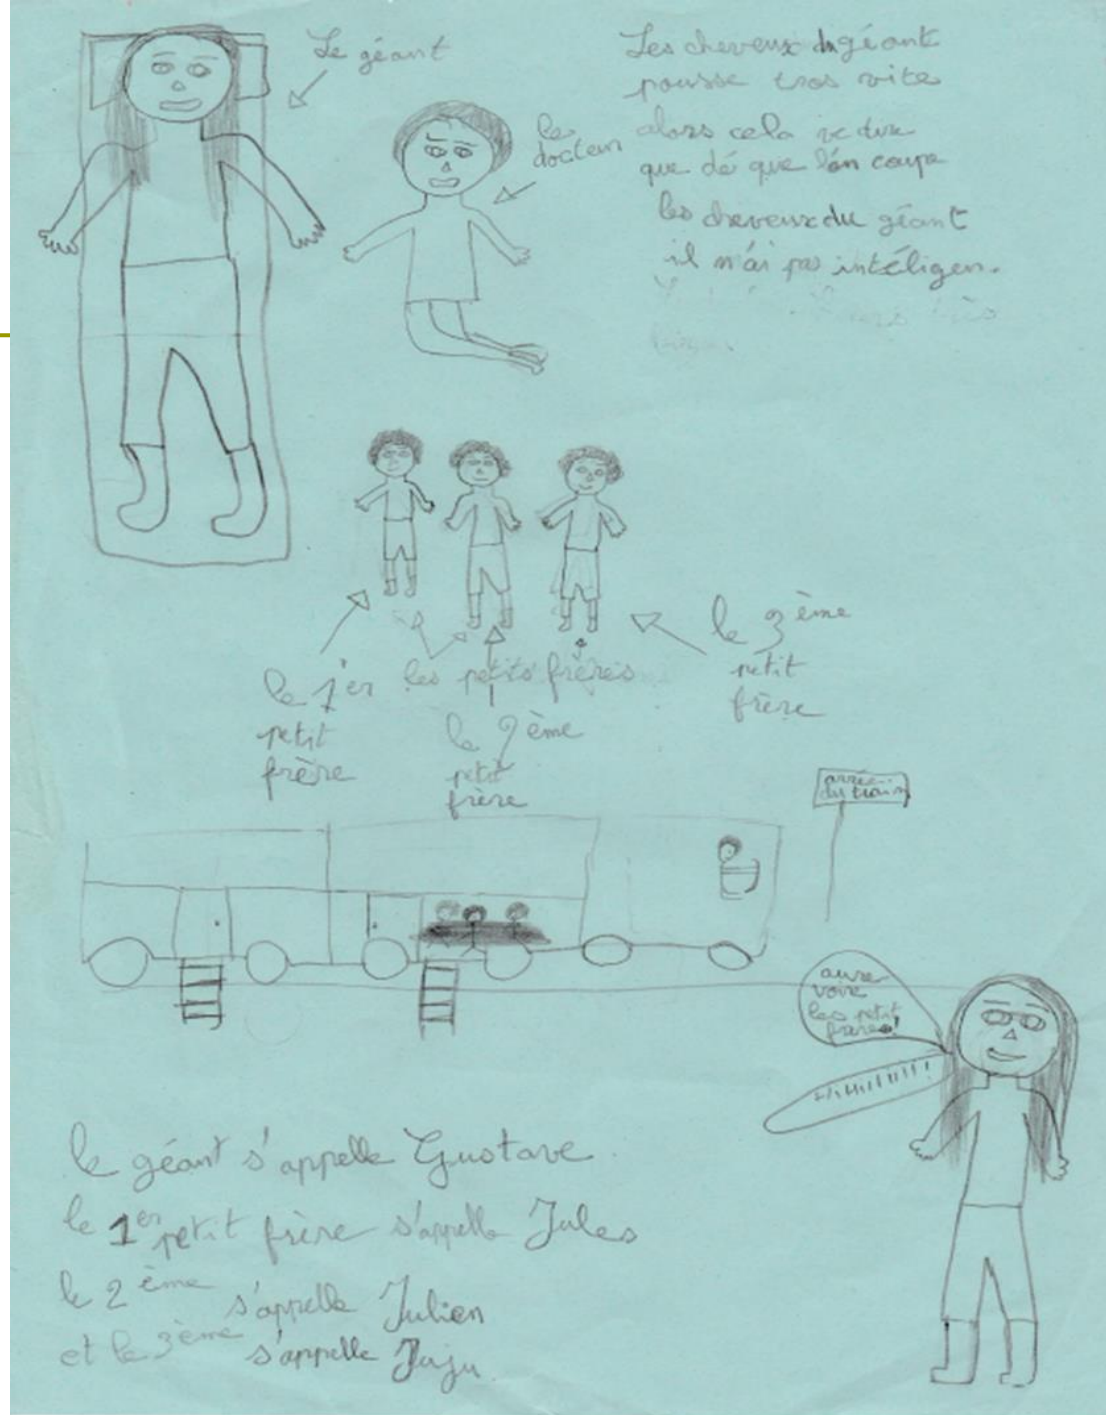 Le géant
le
docteur
Les cheveux du géant
pousse tros vite
alors cela ve dire
que dé que l'on coupe
les cheveux du géant
il n'ai pas intéligen.
le 1er
petit
frère
les petits frères
le 2ème
petit
frère
le 3ème
petit
frère
arrée
du train
aure
voire
les petit
frères!
le géant s'appelle Gustave.
le 1er petit frère s'appelle Jules
le 2ème s'appelle Julien
et le 3ème s'appelle Juju.